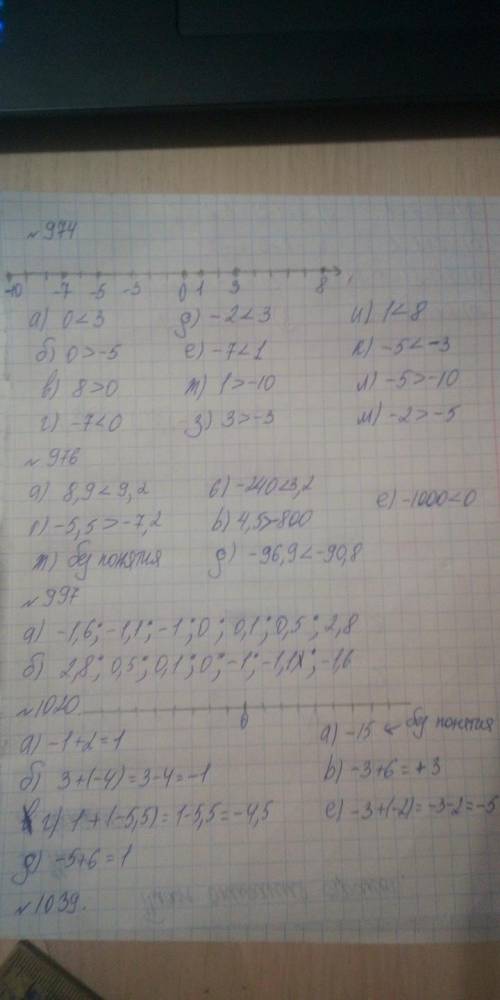 ~974
-10 -7 -5 -3 0 1 3 8
а) 0<3 д) -2<3 и) 1<8
б) 0>-5 е) -7<1 к) -5<-3
в) 8>0 ж) 1>-10 л) -5>-10
г) -7<0 з) 3>-3 м) -2>-5
~976
а) 8,9<9,2 б) -240<3,2 е) -1000<0
г) -5,5>-7,2 в) 4,5>-800
ж) без понятия д) -96,9<-90,8
~997
а) -1,6; -1,1; -1; 0; 0,1; 0,5; 2,8
б) 2,8; 0,5; 0,1; 0; -1; -1,1; -1,6
~1020 0
а) -1+2=1 а) -15 ← без понятия
б) 3+(-4)=3-4=-1 в) -3+6=+3
г) 1+(-5,5)=1-5,5=-4,5 е) -3+(-2)=-3-2=-5
д) -5+6=1
~1039.